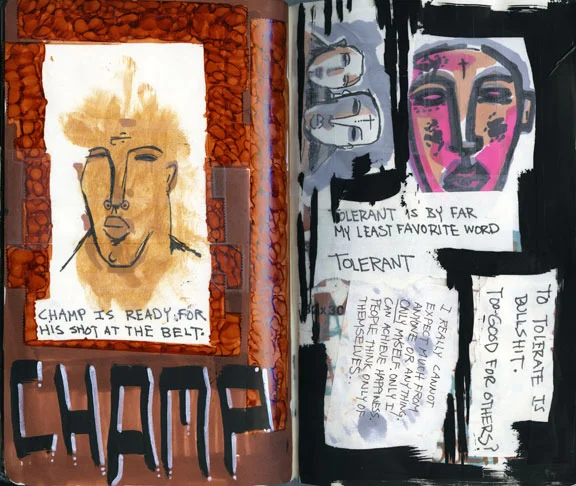 CHAMP IS READY FOR
HIS SHOT AT THE BELT.
CHAMP
TOLERANT IS BY FAR
MY LEAST FAVORITE WORD
TOLERANT
I REALLY CANNOT
EXPECT MUCH FROM
ANYONE OR ANYTHING.
ONLY MYSELF ONLY I
CAN ACHIEVE HAPPINESS.
PEOPLE THINK ONLY OF
THEMSELVES.
TO TOLERATE IS
BULLSHIT.
TOO GOOD FOR OTHERS?